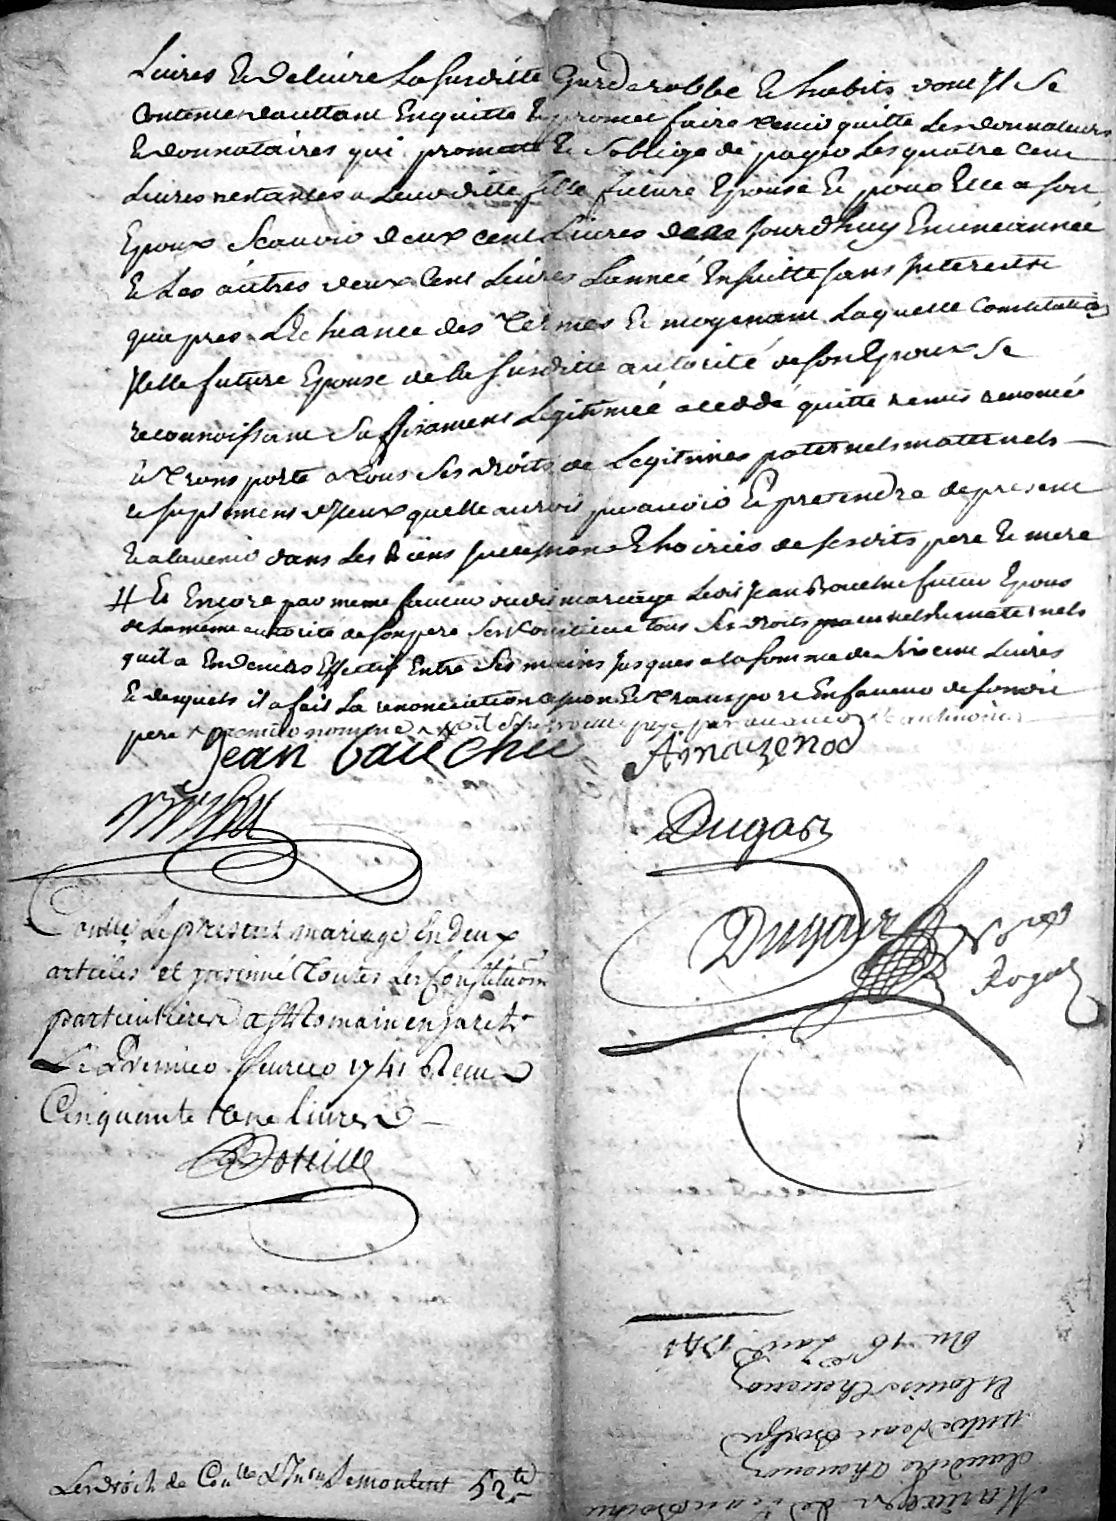 Livres & delivré La susditte Garderobbe & habits dont Il Se
Contente dauttant Enquitte & promet faire tenir quitte Les donnateurs
& donnataires qui promett & Soblige de payer Les quatre cent
Livres restantes a Leurditte fille future Epouse & pour Elle a son
Epoux Scavoir deux cent Livres de ce Jourdhuy En une année
& Les autres deux Cent Livres Lannée Ensuitte sans Interest
quapres Lecheance des termes & moyenant Laquelle Constitution
Jcelle future Epouse de la susditte autorité de son Epoux Se
reconnoissant Suffisament Legitimée a ceddé quitté remis renoncé
& transporté a tous Ses droits de Legitimes paternels maternels
& suplement dJceux quelle auroit pu avoir & pretendre de present
& a lavenir dans Les biens successions & hoiries de sesdits pere & mere
# Et Encore par meme faveur dudit mariage Ledit Jean future Epoux
de La meme autorité de son pere Sest Constitué tous Ses droits paternels & maternels
quil a En deniers Effectif Entre Ses mains Jusques a la somme de Six cent Livres
& desquels il a fait La renonciation cession & transport En faveur de son dit
pere
Jean bauchu Arnauzenod
Dugas
Dugas Nore
Royal
Controllé Le present mariage En deux
articles et insinué toutes Les Constitutions
particulieres a St Romain en Jarets
Le Premier fevrier 1741 Receu
Cinquante livres
Les droits de Con.lle & Insn. Se montent 52 lt
Mariage de Jean
Claudine Chavanon
Jean
& Louise Chavanon
Du 16 Janv. 1741